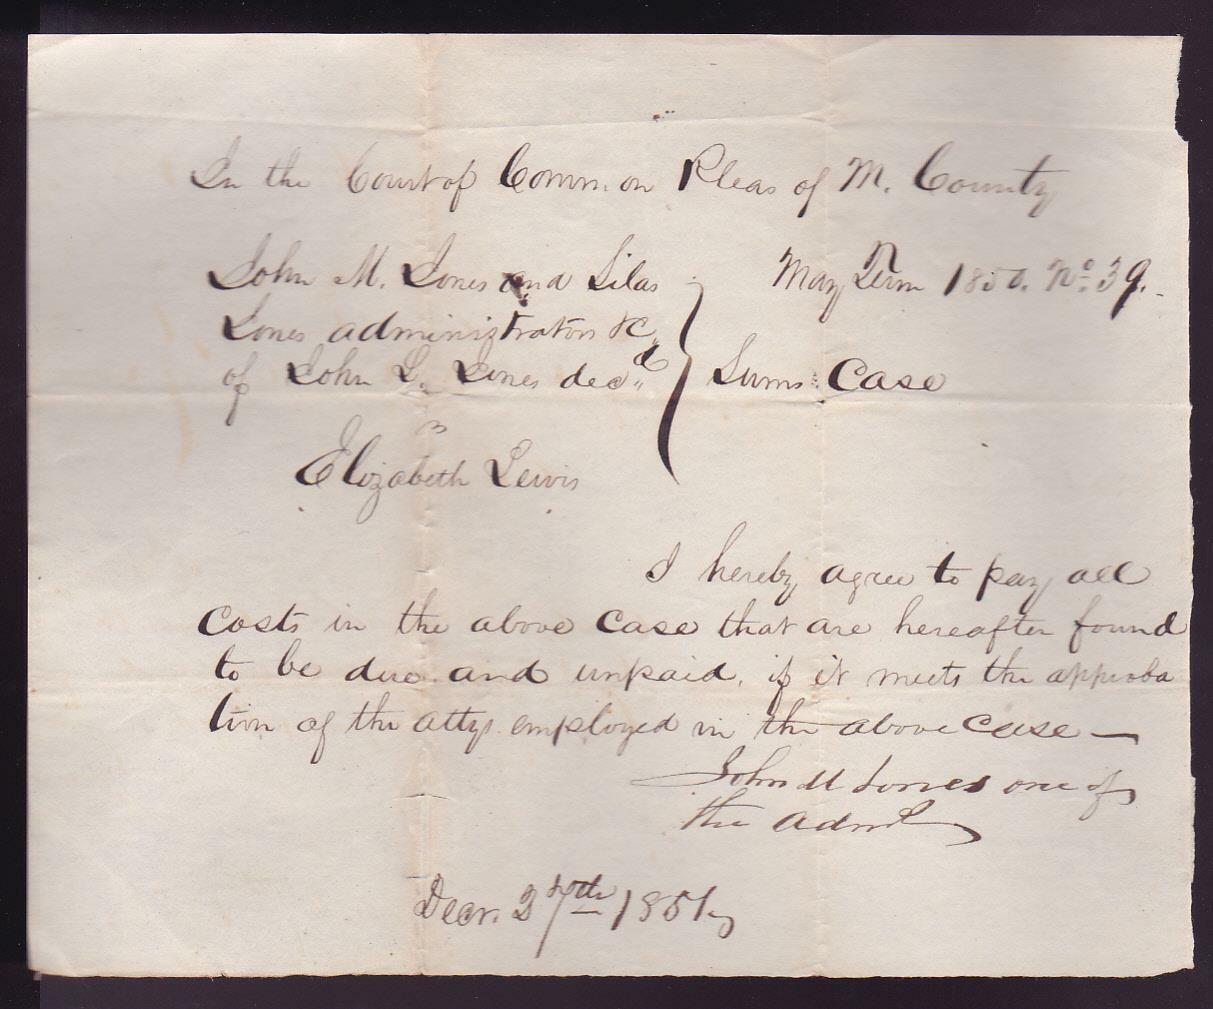 In the Court of Common Pleas of M. County
John M. Jones and Silas
Jones administrators &c.
of John L. Jones decd.
vs
Elizabeth Lewis
May Term 1850. No. 39.
Sums. Case
I hereby agree to pay all
costs in the above case that are hereafter found
to be due and unpaid, if it meets the approba
tion of the attys. employed in the above case —
John M Jones one of
the Adm
Decr. 27th 1851